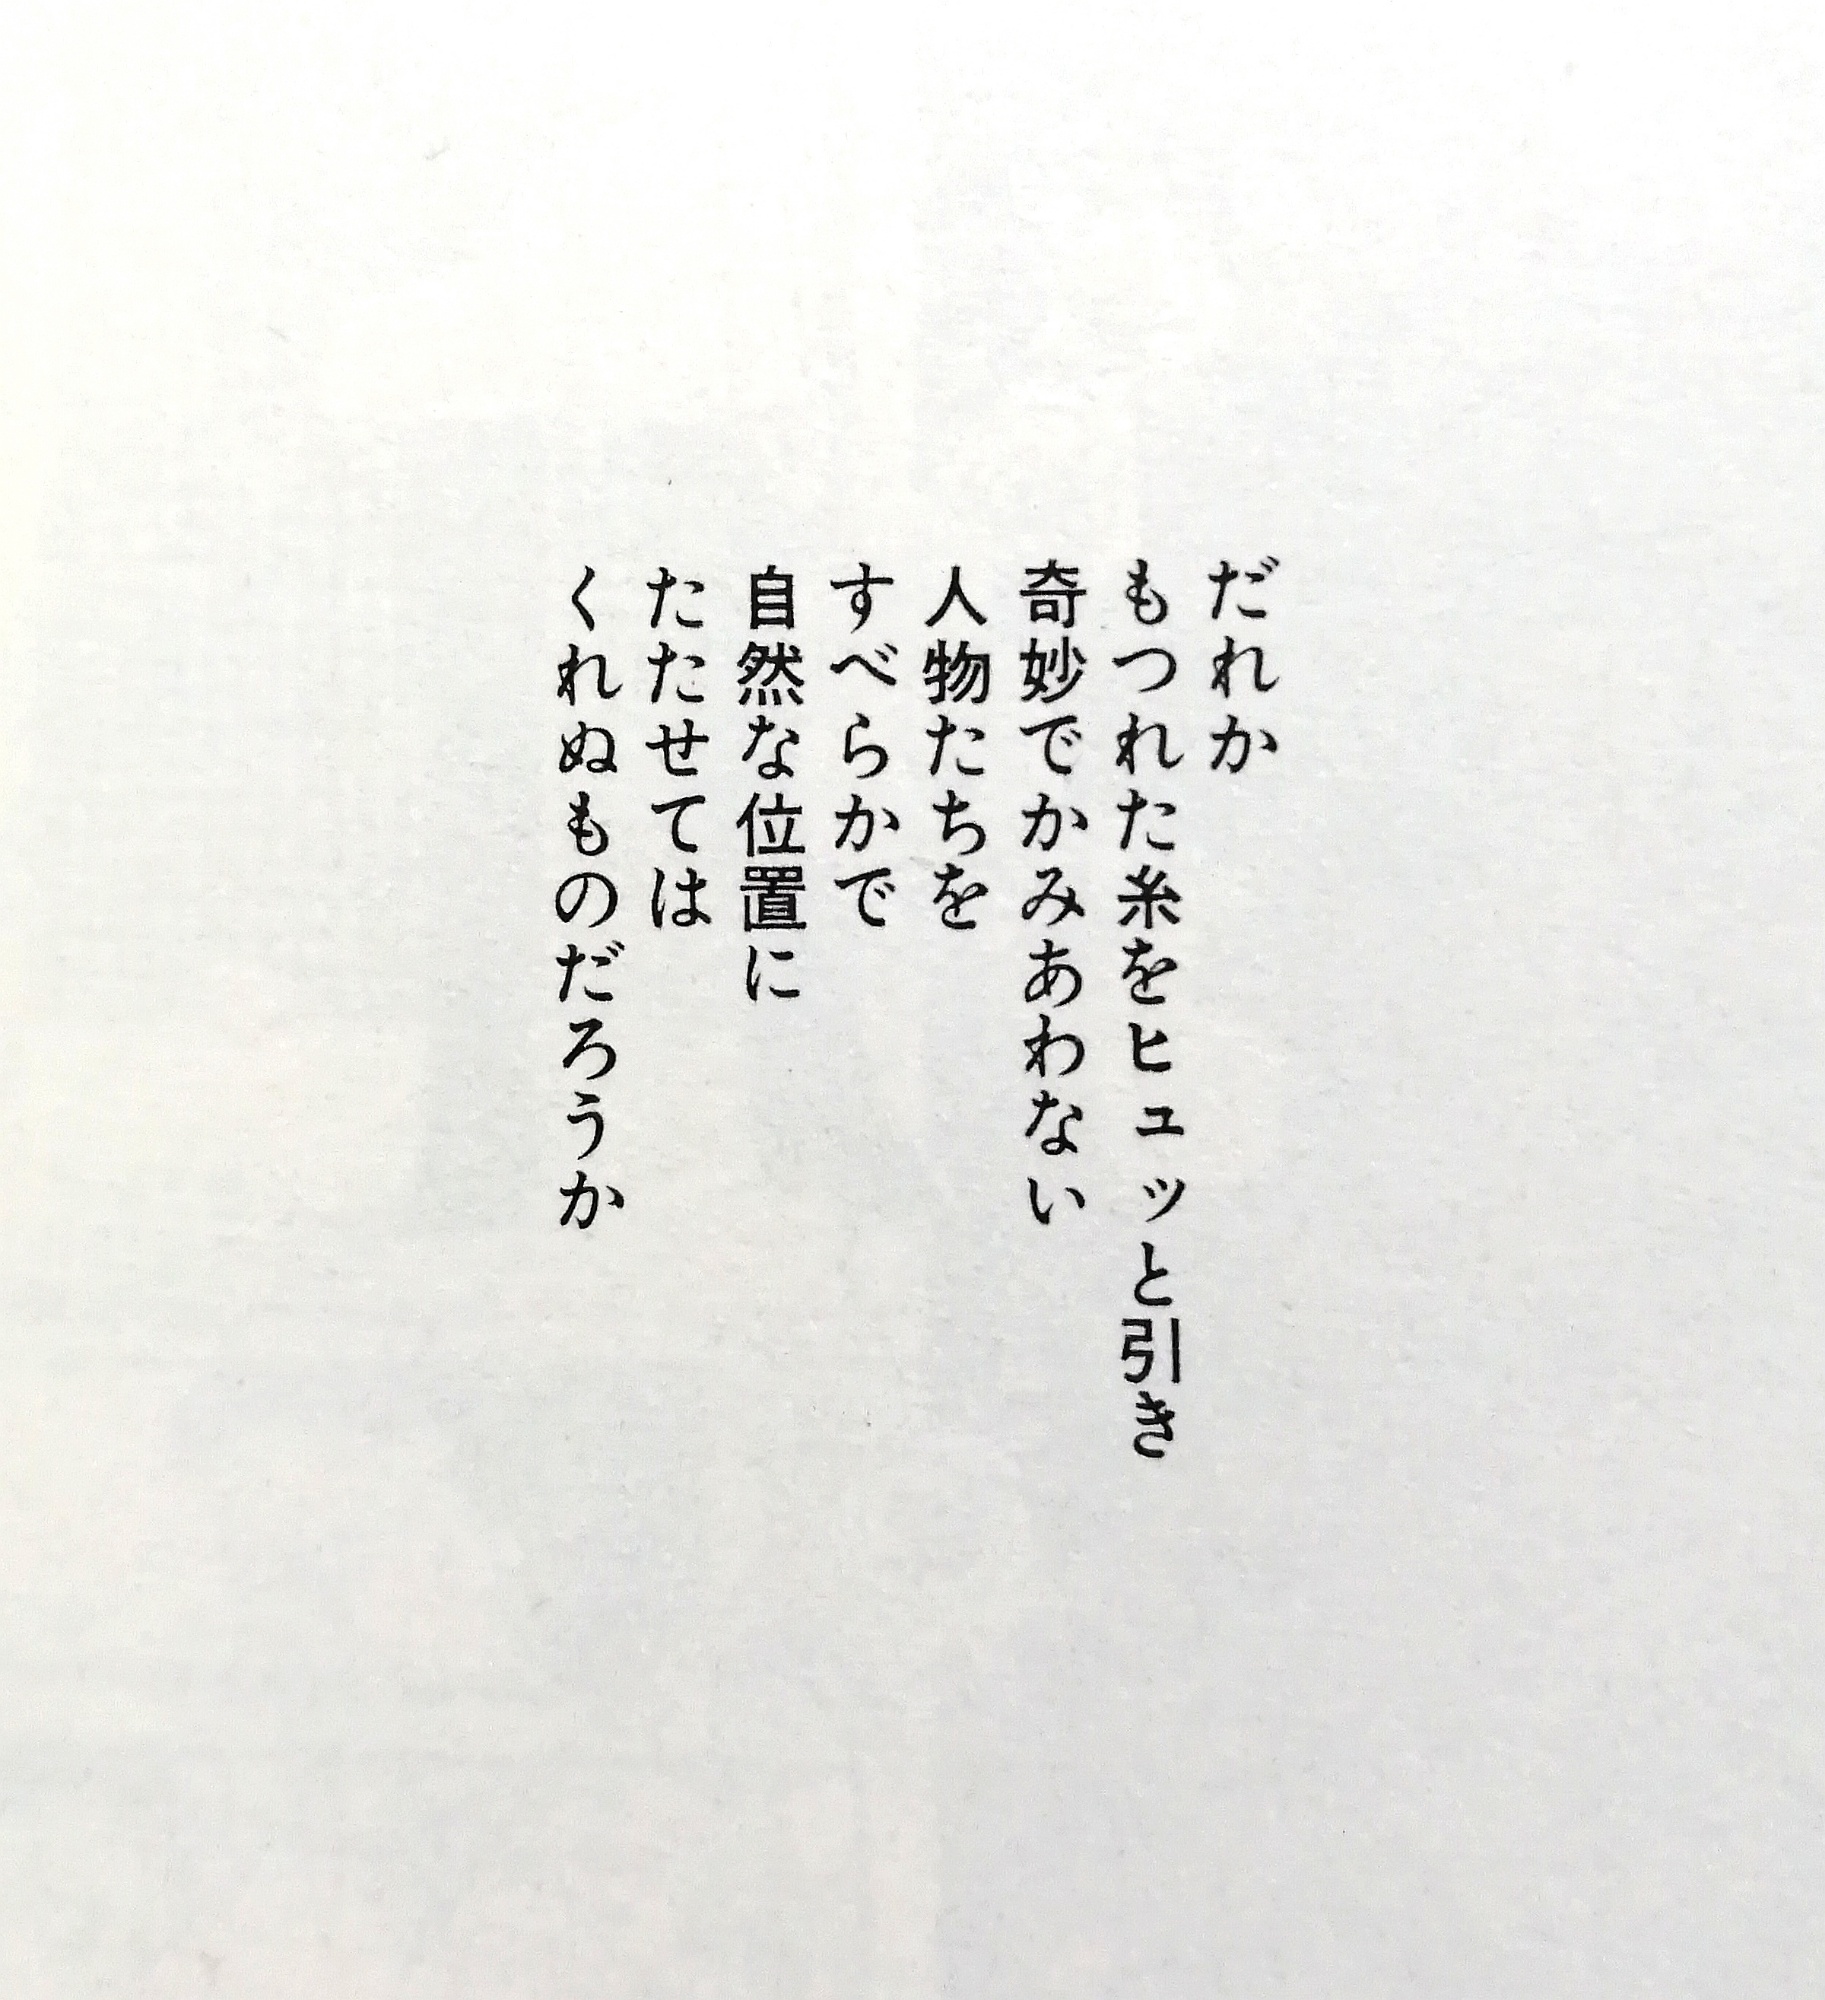 だれか
もつれた糸をヒュッと引き
奇妙でかみあわない
人物たちを
すべらかで
自然な位置に
たたせては
くれぬものだろうか